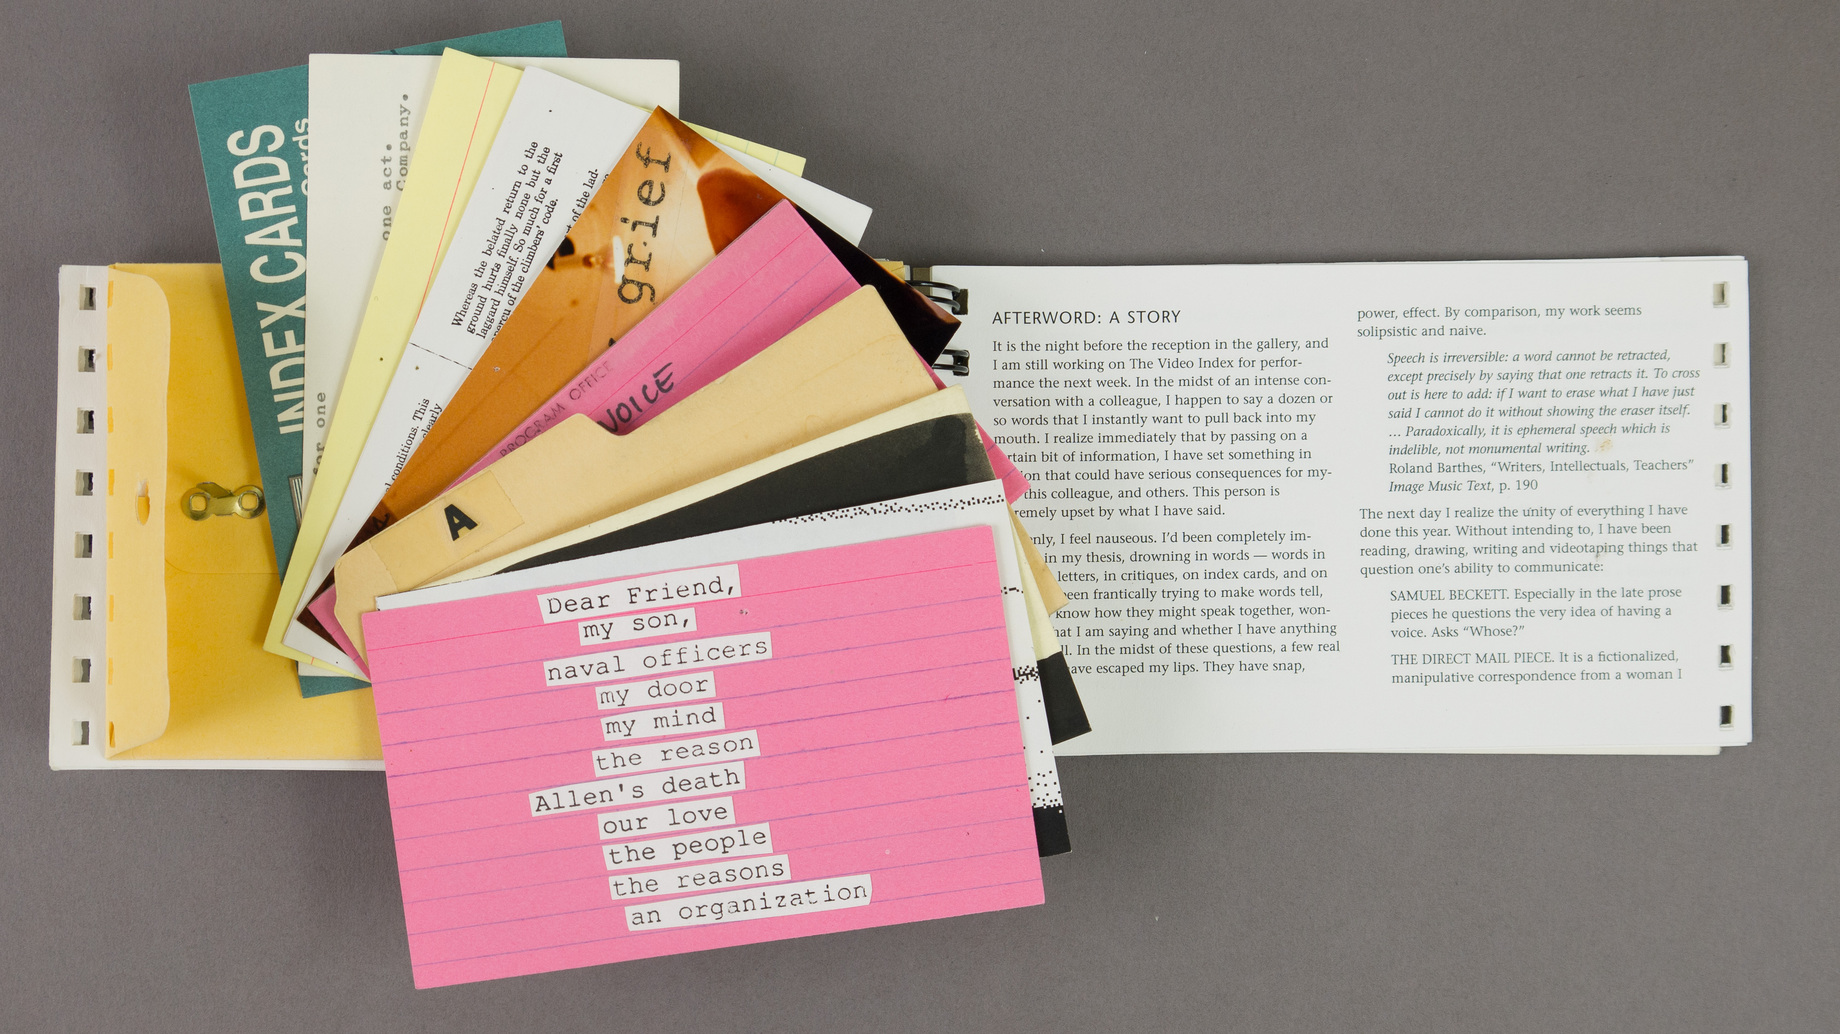 INDEX CARDS
Cards
for one
one act.
Company.
Whereas the belated return to the
ground hurts finally none but the
laggard himself. So much for a first
apercu of the climbers' code.
of the lad-
conditions. This
clearly
grief
PROGRAM OFFICE
VOICE
A
Dear Friend,
my son,
naval officers
my door
my mind
the reason
Allen's death
our love
the people
the reasons
an organization
AFTERWORD: A STORY
It is the night before the reception in the gallery, and
I am still working on The Video Index for perfor-
mance the next week. In the midst of an intense con-
versation with a colleague, I happen to say a dozen or
so words that I instantly want to pull back into my
mouth. I realize immediately that by passing on a
rtain bit of information, I have set something in
ion that could have serious consequences for my-
this colleague, and others. This person is
remely upset by what I have said.
nly, I feel nauseous. I'd been completely im-
in my thesis, drowning in words — words in
letters, in critiques, on index cards, and on
een frantically trying to make words tell,
know how they might speak together, won-
at I am saying and whether I have anything
l. In the midst of these questions, a few real
have escaped my lips. They have snap,
power, effect. By comparison, my work seems
solipsistic and naive.
Speech is irreversible: a word cannot be retracted,
except precisely by saying that one retracts it. To cross
out is here to add: if I want to erase what I have just
said I cannot do it without showing the eraser itself.
... Paradoxically, it is ephemeral speech which is
indelible, not monumental writing.
Roland Barthes, "Writers, Intellectuals, Teachers"
Image Music Text, p. 190
The next day I realize the unity of everything I have
done this year. Without intending to, I have been
reading, drawing, writing and videotaping things that
question one's ability to communicate:
SAMUEL BECKETT. Especially in the late prose
pieces he questions the very idea of having a
voice. Asks "Whose?"
THE DIRECT MAIL PIECE. It is a fictionalized,
manipulative correspondence from a woman I